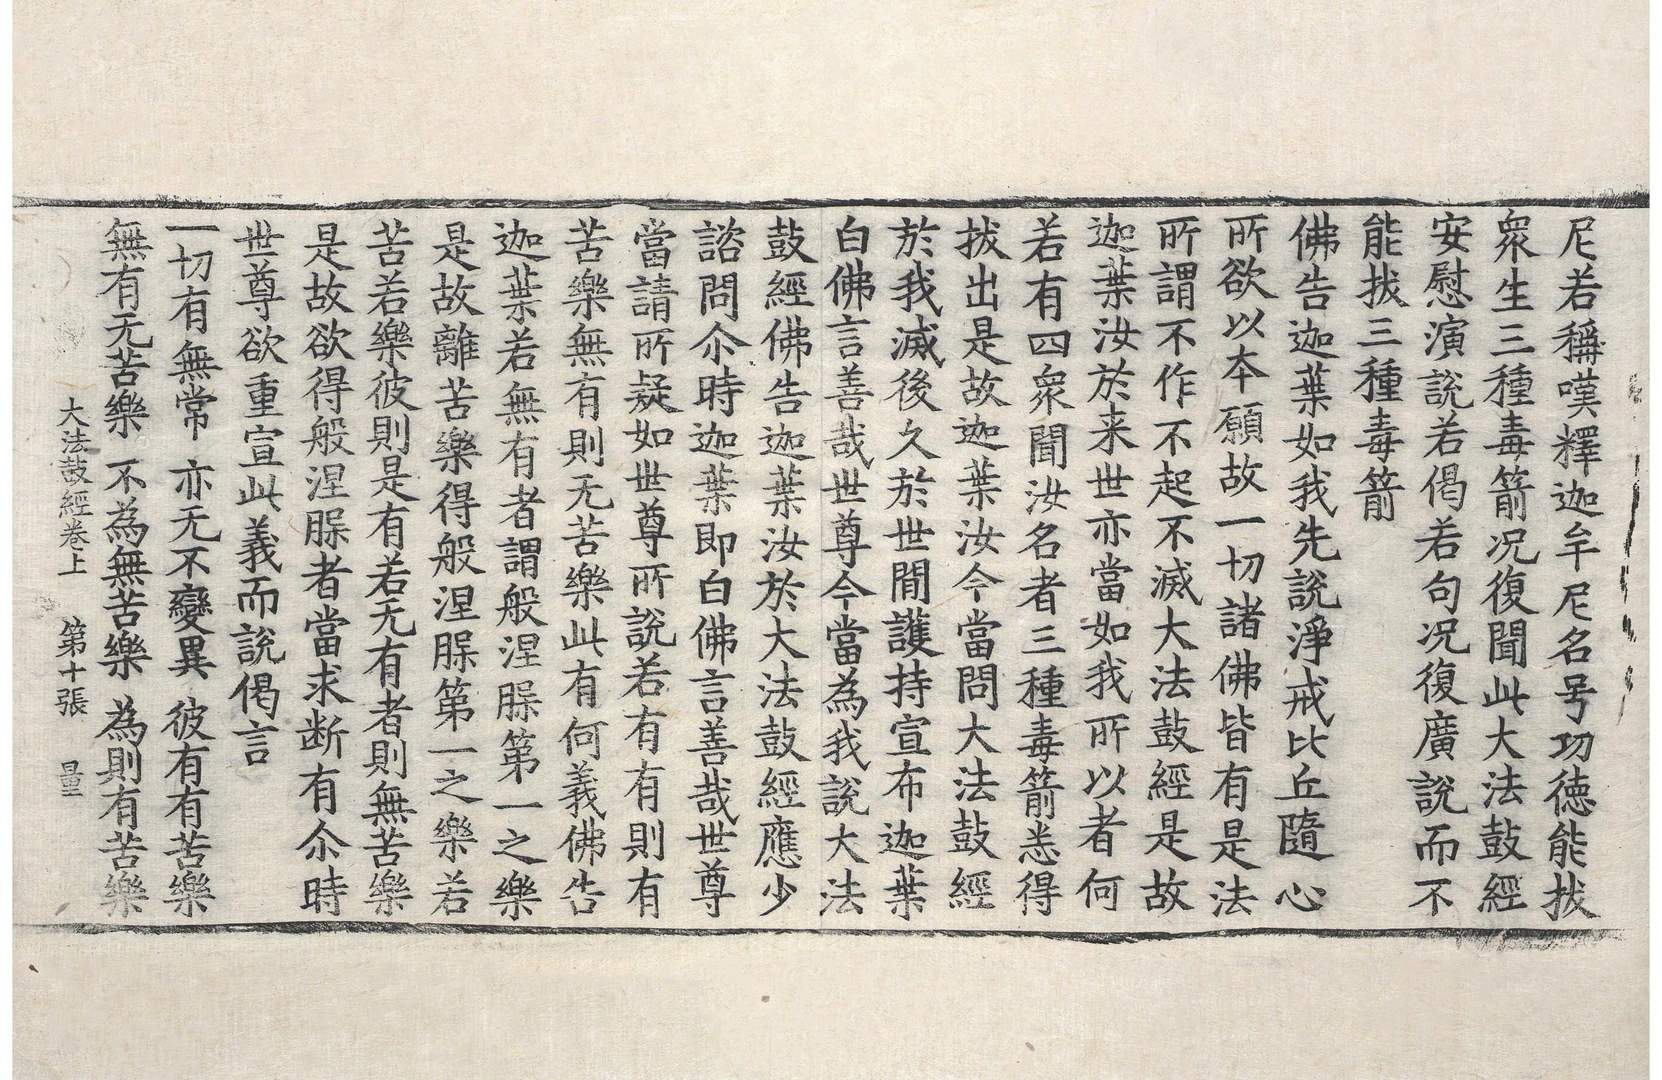 尼若稱嘆釋迦牟尼名号功徳能拔
衆生三種毒箭况復聞此大法鼓經
安慰演說若偈若句况復廣說而不
能拔三種毒箭
佛告迦葉如我先說淨戒比丘隨心
所欲以本願故一切諸佛皆有是法
所謂不作不起不滅大法鼓經是故
迦葉汝於来世亦當如我所以者何
若有四衆聞汝名者三種毒箭悉得
拔出是故迦葉汝今當問大法鼓經
於我滅後久於世間護持宣布迦葉
白佛言善哉世尊今當為我說大法
鼓經佛告迦葉汝於大法鼓經應少
諮問尒時迦葉即白佛言善哉世尊
當請所疑如世尊所說若有有則有
苦樂無有則无苦樂此有何義佛告
迦葉若無有者謂般涅脲第一之樂
是故離苦樂得般涅脲第一之樂若
苦若樂彼則是有若无有者則無苦樂
是故欲得般涅脲者當求断有尒時
世尊欲重宣此義而說偈言
一切有無常 亦无不變異 彼有有苦樂
無有无苦樂 不為無苦樂 為則有苦樂
大法鼓經卷上 第十張 量